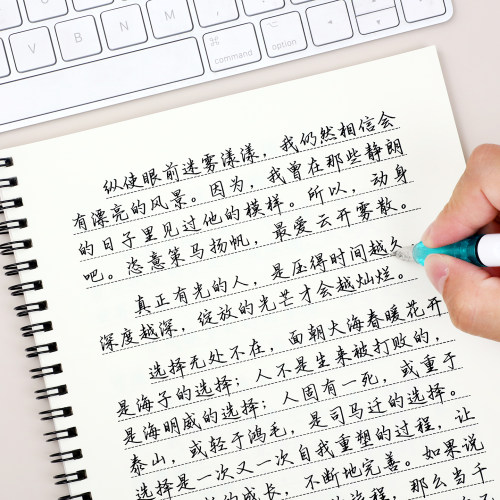 V
B
N
M
<
,
>
.
?
/
⌘
command
⌥
option
纵使眼前迷雾漾漾，我仍然相信会
有漂亮的风景。因为，我曾在那些静朗
的日子里见过他的模样。所以，动身
吧。恣意策马扬帆，最爱云开雾散。
真正有光的人，是压得时间越久
深度越深，绽放的光芒才会越灿烂。
选择无处不在，面朝大海春暖花开
是海子的选择；人不是生来被打败的，
是海明威的选择；人固有一死，或重于
泰山，或轻于鸿毛，是司马迁的选择。
选择是一次又一次自我重塑的过程，让
的成长，不断地完善。如果说
旅程，那么当千